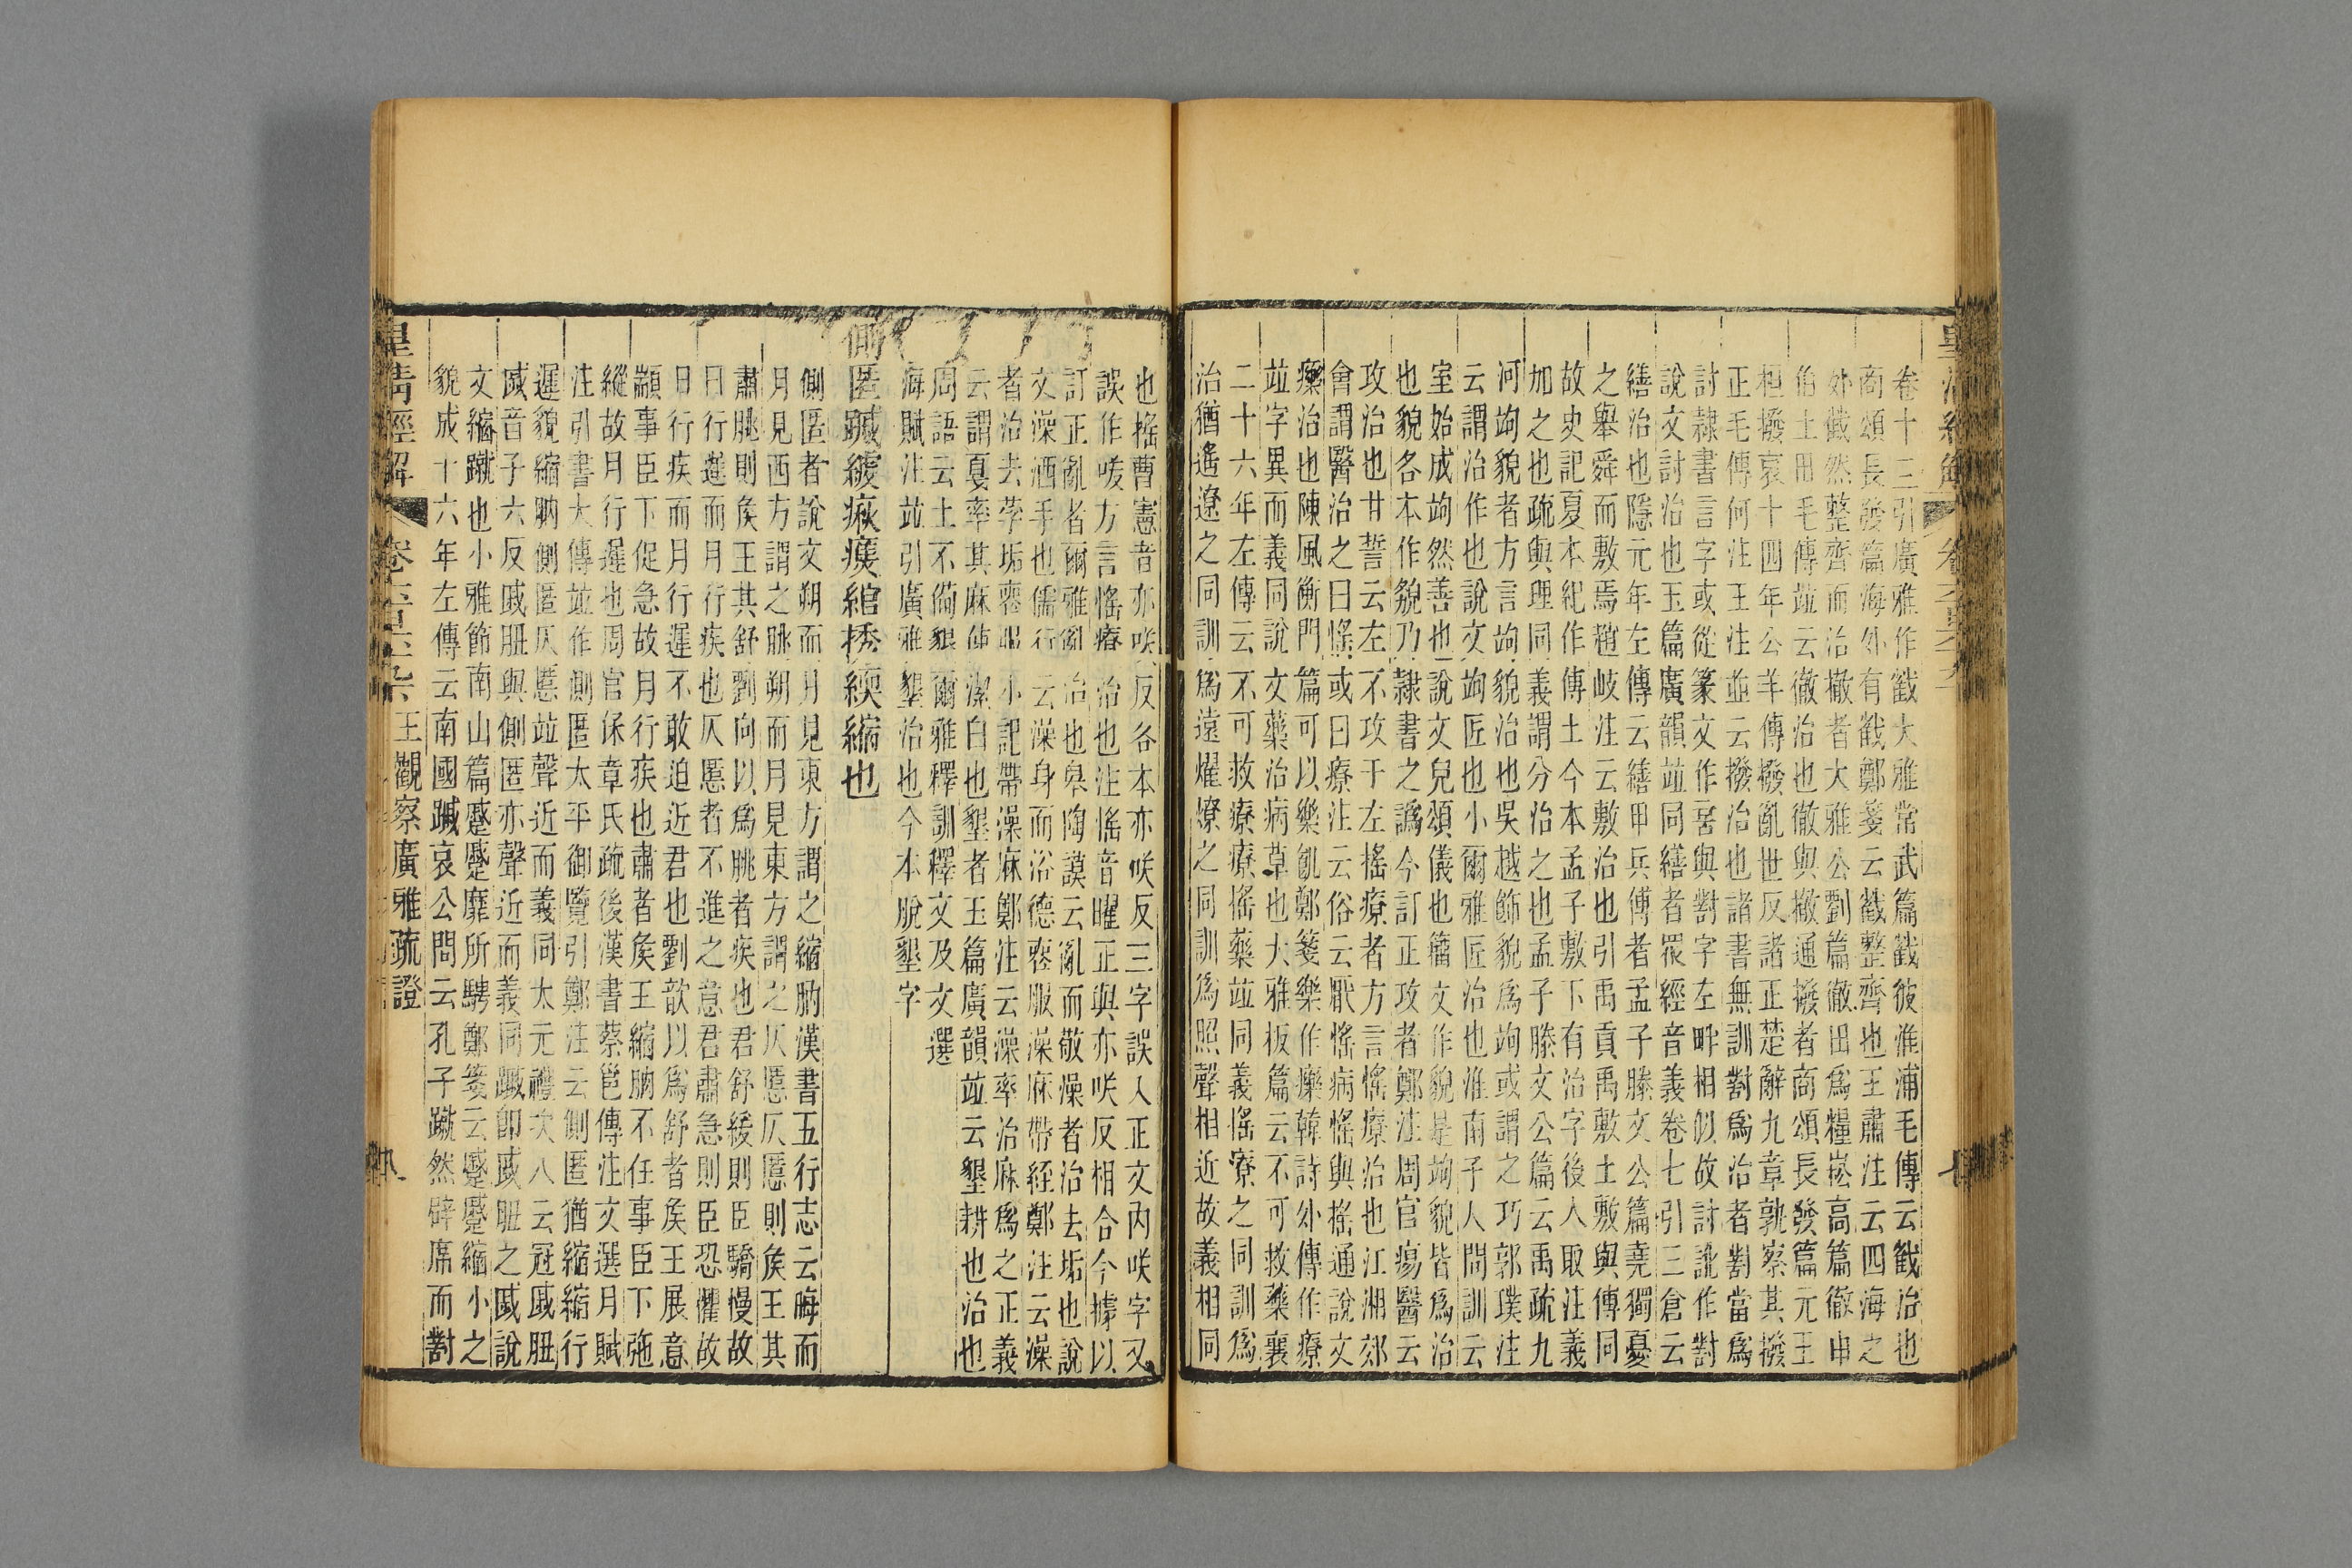 卷十三引廣雅作截大雅常武篇截彼淮浦毛傳云截治也
商頌長發篇海外有截鄭箋云截整齊也王肅注云四海之
外截然整齊而治撤者大雅公劉篇徹田爲糧崧高篇徹申
伯土田毛傳竝云徹治也徹與撤通撥者商頌長發篇元王
桓撥哀十四年公羊傳撥亂世反諸正楚辭九章孰察其撥
正毛傳何注王注並云撥治也諸書無訓對爲治者對當爲
討隸書言字或從篆文作𧥜與對字左畔相似故討譌作對
說文討治也玉篇廣韻竝同繕者眾經音義卷七引三倉云
繕治也隱元年左傳云繕甲兵傅者孟子滕文公篇堯獨憂
之舉舜而敷焉趙岐注云敷治也引禹貢禹敷土敷與傅同
故史記夏本紀作傅土今本孟子敷下有治字後人取注義
加之也疏與理同義謂分治之也孟子滕文公篇云禹疏九
河竘貌者方言竘貌治也吳越飾貌爲竘或謂之巧郭璞注
云謂治作也說文竘匠也小爾雅匠治也淮南子人間訓云
室始成竘然善也說文皃頌儀也籒文作貌是竘貌皆爲治
也貌各本作䫉乃隸書之譌今訂正攻者鄭注周官瘍醫云
攻治也甘誓云左不攻于左搖療者方言愮療治也江湘郊
會謂醫治之曰愮或曰療注云俗云厭愮病愮與搖通說文
𤻲治也陳風衡門篇可以樂飢鄭箋樂作𤻲韓詩外傳作療
竝字異而義同說文藥治病草也大雅板篇云不可救藥襄
二十六年左傳云不可救療療搖藥竝同義搖療之同訓爲
治猶遙遼之同訓爲遠燿燎之同訓爲照聲相近故義相同
也搖曹憲音亦咲反各本亦咲反三字誤入正文內咲字又
誤作㗛方言愮療治也注愮音曜正與亦咲反相合今據以
訂正亂者爾雅亂治也皋陶謨云亂而敬澡者治去垢也說
文澡洒手也儒行云澡身而浴德喪服澡麻帶絰鄭注云澡
者治去莩垢喪服小記帶澡麻鄭注云澡率治麻爲之正義
云謂戛率其麻使潔白也墾者玉篇廣韻竝云墾耕也治也
周語云土不備墾爾雅釋訓釋文及文選
海賦注竝引廣雅墾治也今本脫墾字
側匿𧿒緩瘶瘼綰㩭緛縮也
側匿者說文朔而月見東方謂之縮朒漢書五行志云晦而
月見西方謂之朓朔而月見東方謂之仄慝仄慝則侯王其
肅朓則侯王其舒劉向以爲朓者疾也君舒緩則臣驕慢故
日行遲而月行疾也仄慝者不進之意君肅急則臣恐懼故
日行疾而月行遲不敢迫近君也劉歆以爲舒者侯王展意
顓事臣下促急故月行疾也肅者侯王縮朒不任事臣下弛
縱故月行遲也周官保章氏疏後漢書蔡邕傳注文選月賦
注引書大傳竝作側匿太平御覽引鄭注云側匿猶縮縮行
遲貌縮朒側匿仄慝竝聲近而義同太元禮次八云冠戚朒
戚音子六反戚朒與側匿亦聲近而義同𧿒卽戚朒之戚說
文縮蹴也小雅節南山篇蹙蹙靡所騁鄭箋云蹙蹙縮小之
貌成十六年左傳云南國𧿒哀公問云孔子蹴然辟席而對
皇清經解
王觀察廣雅疏證